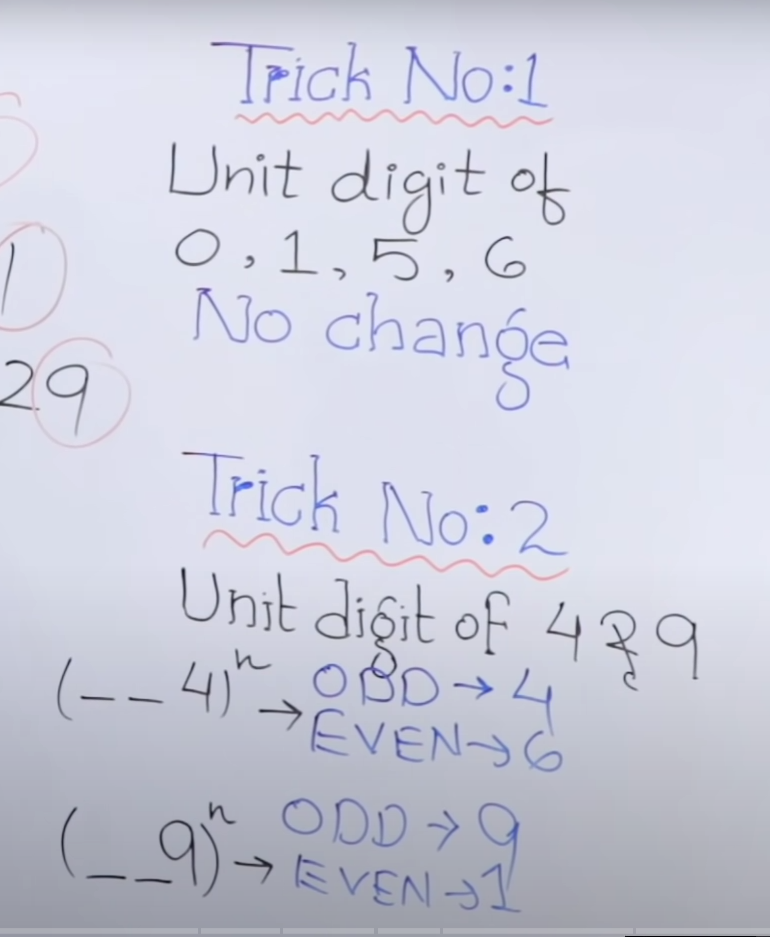 Trick No:1
Unit digit of
0, 1, 5, 6
1
No change
29
Trick No:2
Unit digit of 4 & 9
(_ _ 4)ⁿ → ODD → 4
EVEN → 6
(_ _ 9)ⁿ → ODD → 9
EVEN → 1